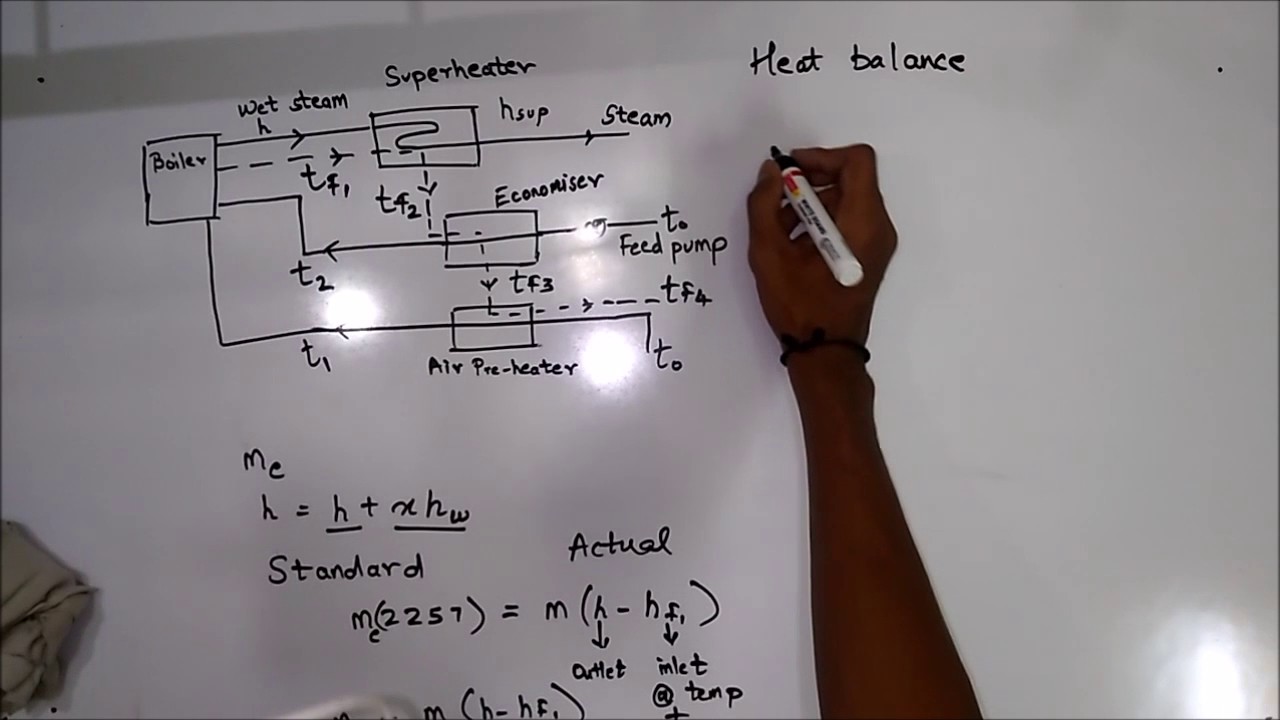 Superheater
Heat balance
Wet steam
h
hsup
Steam
Boiler
tf1
tf2
Economiser
to
Feed pump
t2
tf3
tf4
t1
Air Pre-heater
to
me
h = h + x hw
Standard
Actual
me(2257) = m(h - hf1)
outlet inlet
@ temp
m(h-hf1)